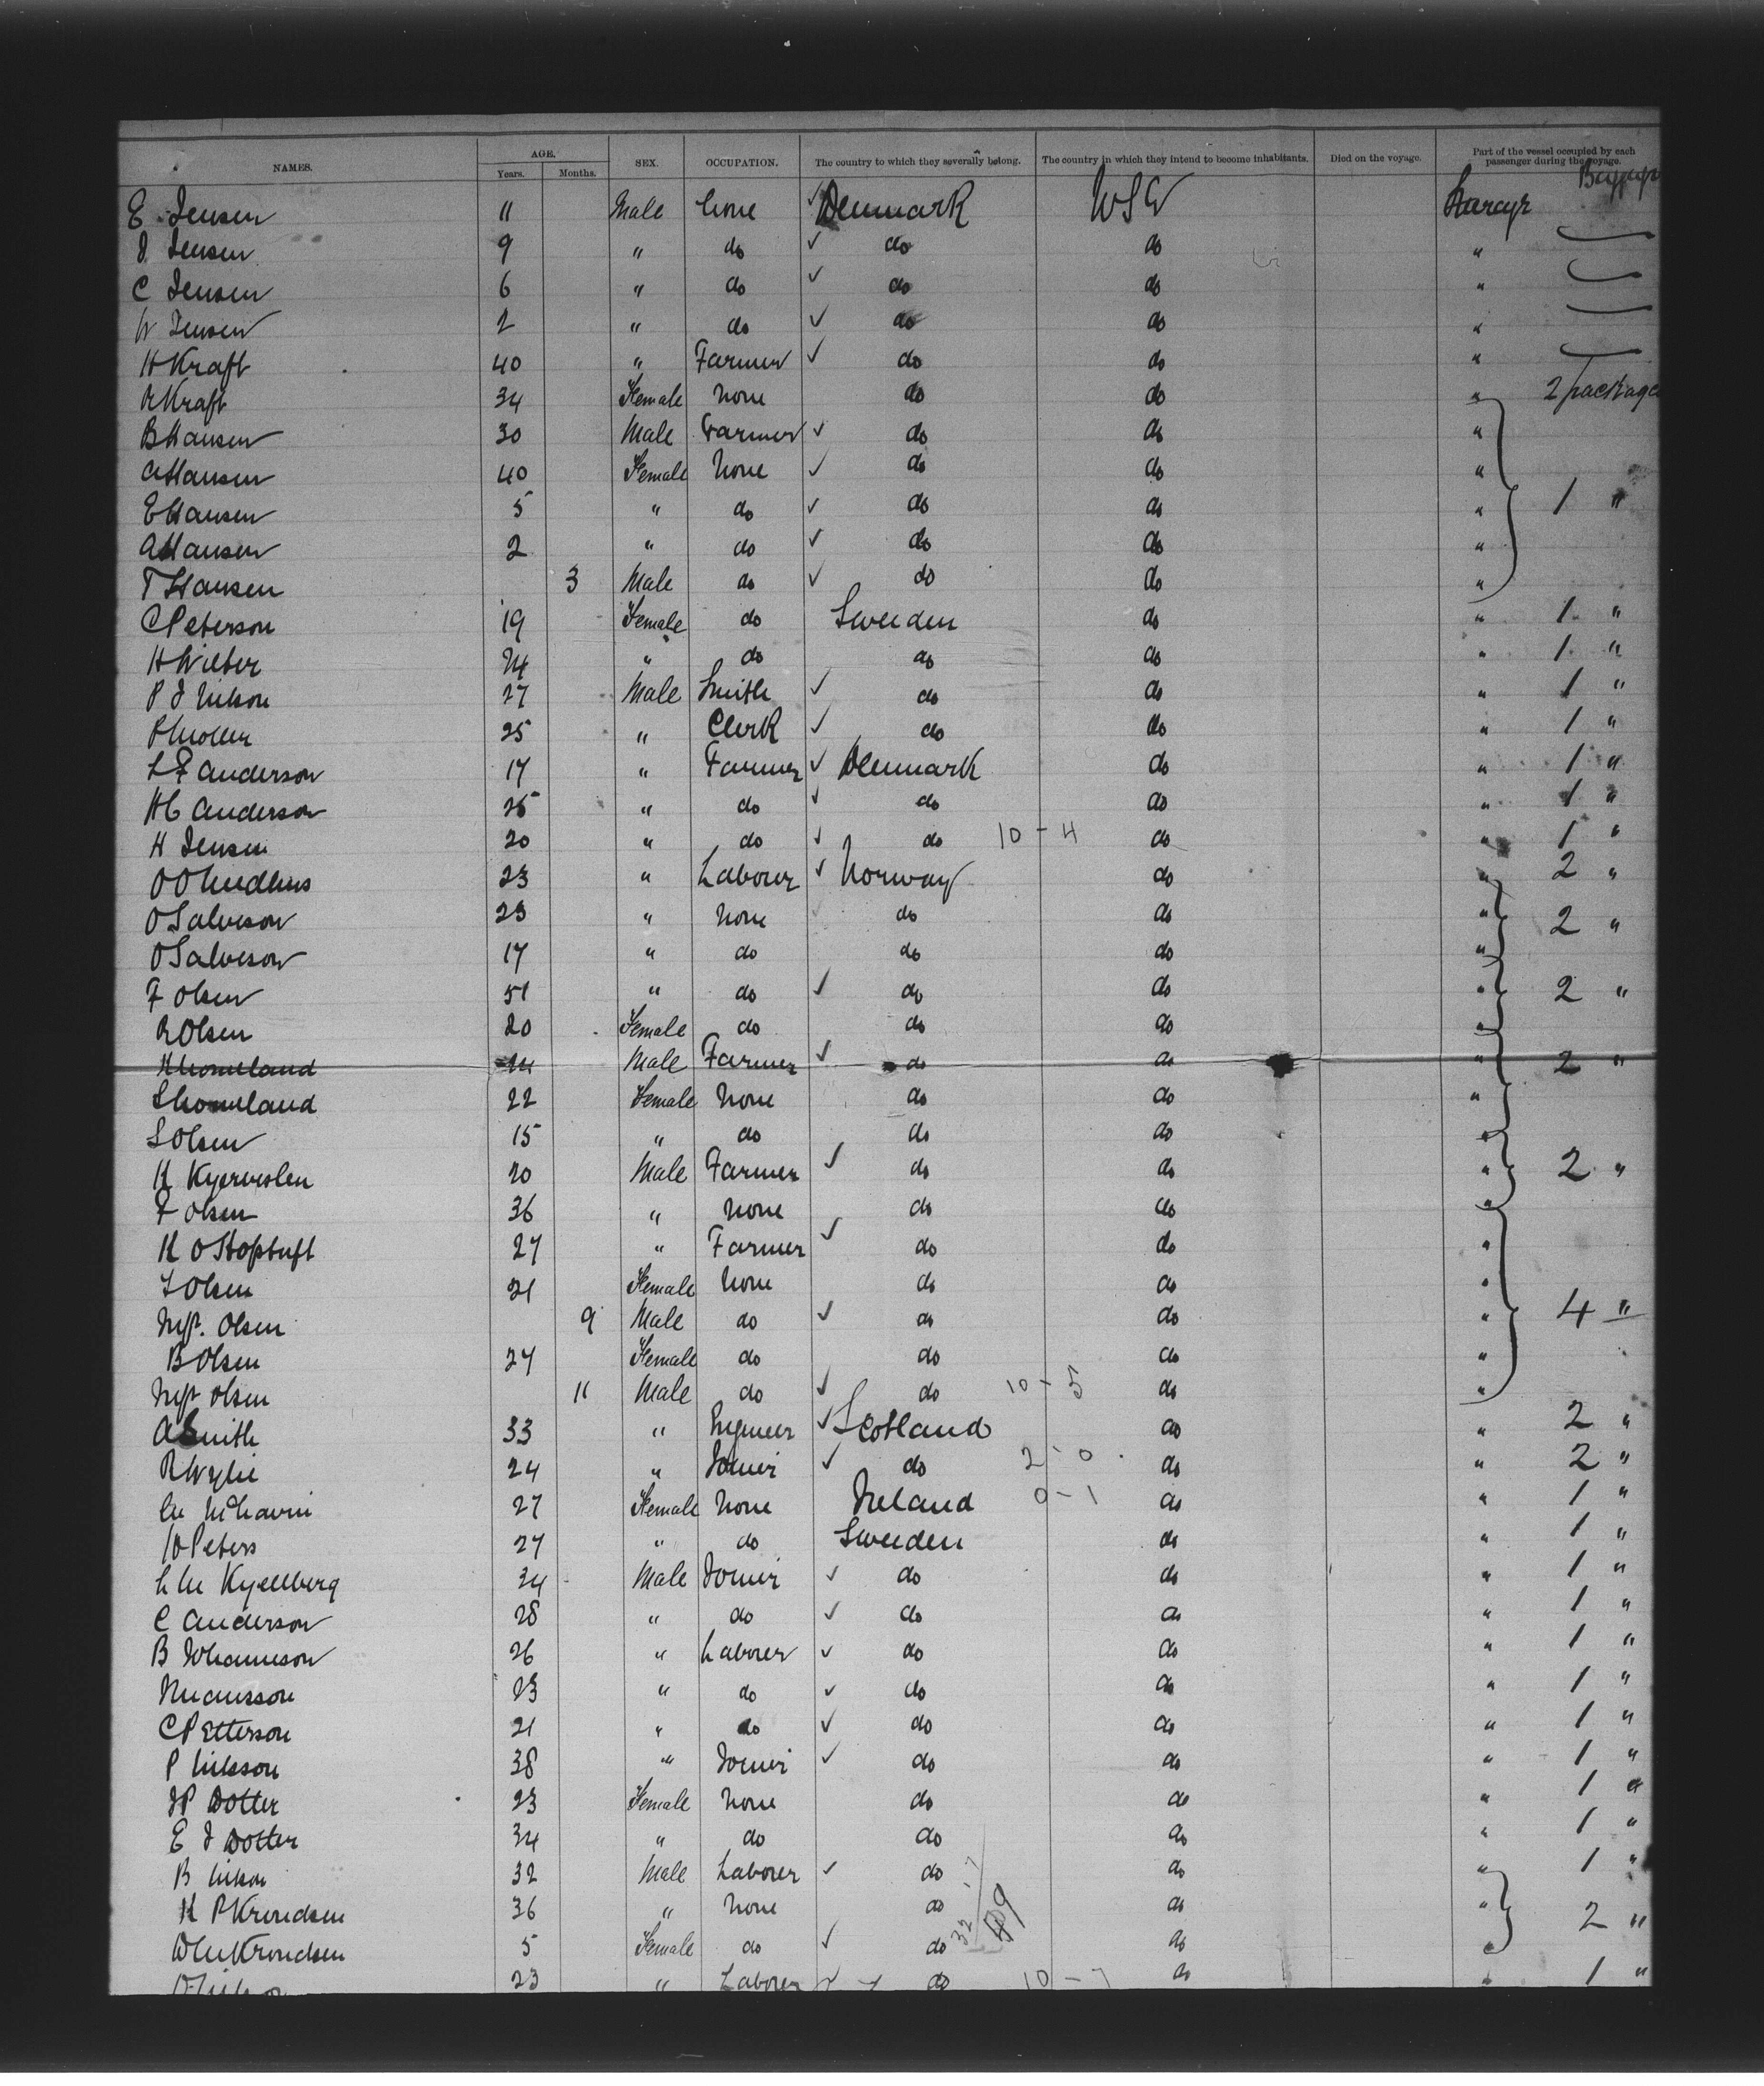 NAMES. AGE. Years. Months. SEX. OCCUPATION. The country to which they severally belong. The country in which they intend to become inhabitants. Died on the voyage. Part of the vessel occupied by each passenger during the voyage.
E Jensen 11 Male None ✓ Denmark USA
J Jensen 9 " do ✓ do do "
C Jensen 6 " do ✓ do do "
W Jensen 2 " do ✓ do do "
H Kraft 40 " Farmer ✓ do do "
R Kraft 34 Female None do do " 2 package
B Hansen 30 Male Farmer ✓ do do "
A Hansen 40 Female None ✓ do do "
E Hansen 5 " do ✓ do do " 1 "
A Hansen 2 " do ✓ do do "
T Hansen 3 Male do ✓ do do "
C Peterson 19 Female do Sweden do " 1 "
H Wilber 24 " do do do " 1 "
P J Nilson 27 Male Smith ✓ do do " 1 "
P Moller 25 " Clerk ✓ do do " 1 "
L F Anderson 17 " Farmer ✓ Denmark do " 1 "
H C Anderson 25 " do ✓ do do " 1 "
H Jensen 20 " do ✓ do 10-4 do " 1 "
23 " Laborer ✓ Norway do " 2 "
O Salveson 23 " None do do " 2 "
O Salveson 17 " do do do "
F Olsen 51 " do ✓ do do " 2 "
R Olsen 20 Female do do do "
24 Male Farmer ✓ do do " 2 "
22 Female None do do "
S Olsen 15 " do do do "
K 20 Male Farmer ✓ do do " 2 "
F Olsen 36 " None do do "
K O 27 " Farmer ✓ do do "
L Olsen 21 Female None do do "
Olsen 9 Male do ✓ do do " 4 "
B Olsen 24 Female do do do "
Olsen 11 Male do ✓ do 10-5 do "
A Smith 33 " Engineer ✓ Scotland do " 2 "
R Wylie 24 " Joiner ✓ do 2-0 do " 2 "
27 Female None Ireland 0-1 do " 1 "
Peters 27 " do Sweden do " 1 "
Kjellberg 34 Male Joiner ✓ do do " 1 "
C Anderson 28 " do ✓ do do " 1 "
B Johanneson 26 " Laborer ✓ do do " 1 "
23 " do ✓ do do " 1 "
C Petterson 21 " do ✓ do do " 1 "
P Nilsson 38 " Joiner ✓ do do " 1 "
J P Dotter 23 Female None do do " 1 "
E J Dotter 34 " do do do " 1 "
B Nilson 32 Male Laborer ✓ do do " 1 "
K P Krondsen 36 " None do do " 2 "
Krondsen 5 Female do ✓ do do "
23 " Laborer do 10-7 do " 1 "